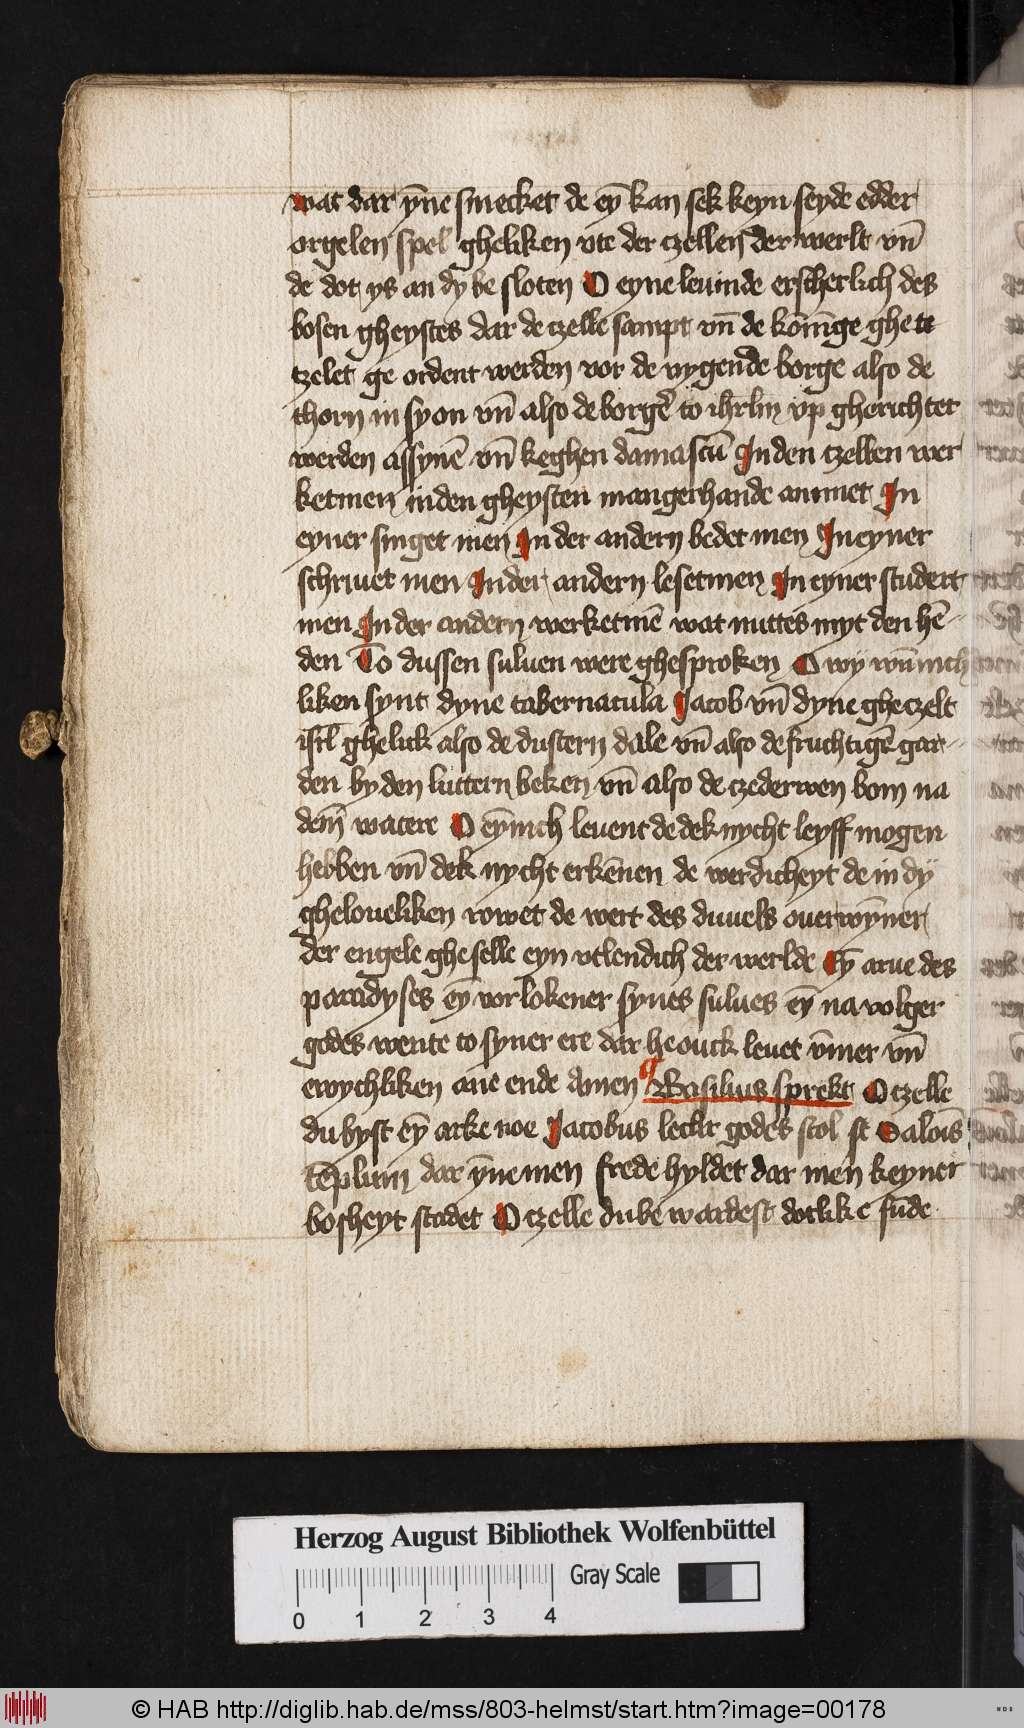 wat dar ȳne smecket de eȳ kan sek keyn seyde edder
orgelen spel gheliken vte der czellen der werlt vn̄
de dot ys an dy be sloten O eyne leuinde erscherlich des
bosen gheystes dar de czelle sampt vn̄ de kōnīge ghe te
tzelet ge ordent werden vor de vygende borge also de
thorn in syon vn̄ also de borgē to ihrl̄m vp gherichtet
werden assynē vn̄ keghen damascū In den tzellen wer
ketmen in den gheysten mangerhande ammet In
eyner singet men In der andern bedet men In eyner
schriuet men In der andern lesetmen In eyner studert
men In der andern werketmē wat nuttes myt den hē
den To dussen suluen were ghesproken O wy wūnich
liken synt dyne tabernacula Jacob vn̄ dyne gheczelt
isrl̄ ghelick also de dustern dale vn̄ also de fruchtigē gar
den by den luttern beken vn̄ also de czederwen bom na
dem̄ watere O eȳnich leuent de dek nycht leyff mogen
hebben vn̄ dek nycht erkēnen de werdicheyt de in dy
gheloueliken vowet de wert des duuels ouerwȳner
der engele gheselle eyn vtlendich der werlde Eȳ arue des
paradyses eȳ vorlokener synes sulues eȳ na volger
godes wente to syner ere dar he ouck leuet v̄mer vn̄
ewychliken ane ende amen Basilius sprekt O czelle
du byst eȳ arke noe Jacobus lecht godes stol st Saloīs
tēplum dar ȳne men frede hyldet dar men keyner
bosheyt stadet O czelle du be wardest dotlike sūde
Herzog August Bibliothek Wolfenbüttel
Gray Scale
0 1 2 3 4
© HAB http://diglib.hab.de/mss/803-helmst/start.htm?image=00178